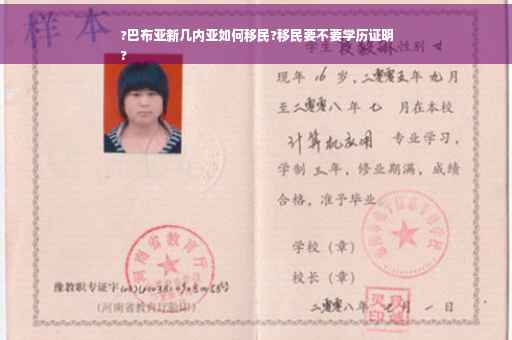 ?巴布亚新几内亚如何移民?移民要不要学历证明
?
样本
学生 性别 女
现年 16 岁,二零零五年 九月
至二零零八年 七 月在本校
计算机应用 专业学习,
学制 三年,修业期满,成绩
合格,准予毕业
学校(章)
校长(章)
二零零八年 月 一日
河南省教育厅
豫教职专证字
(河南省教育厅验印)